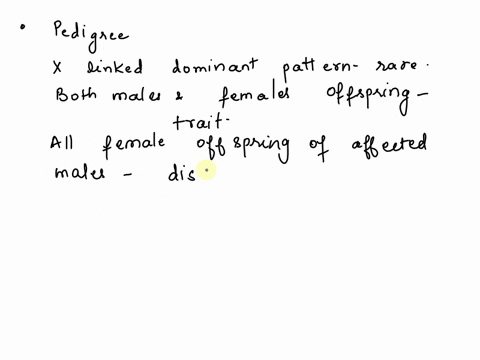 • Pedigree
X linked dominant pattern - rare.
Both males & females offspring -
trait.
All female offspring of affected
males - dis